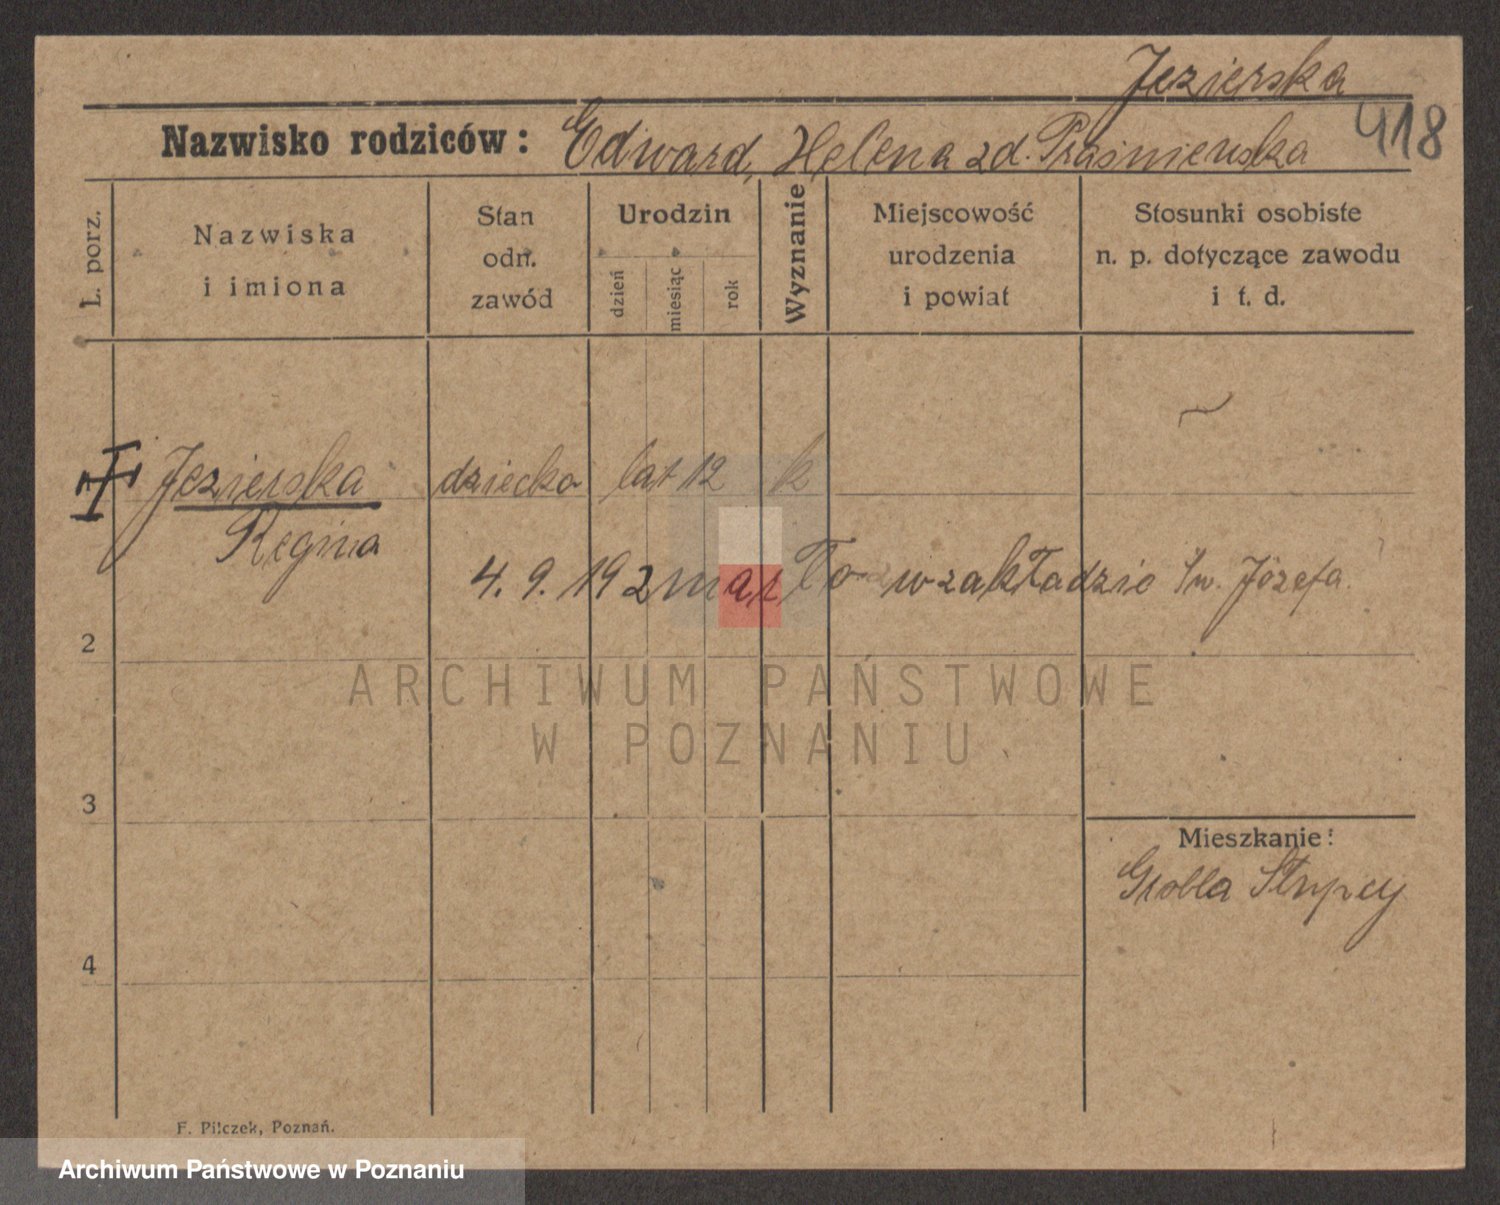 Jezierska
418
Nazwisko rodziców: Edward, Helena zd. Praśniewska
L. porz.
Nazwiska i imiona
Stan odn. zawód
Urodzin
dzień
miesiąc
rok
Wyznanie
Miejscowość urodzenia i powiat
Stosunki osobiste n. p. dotyczące zawodu i t. d.
Jezierska dziecko lat 12 k
Regina
4. 9. 192 marło w zakładzie Św. Józefa.
2
ARCHIWUM PAŃSTWOWE
W POZNANIU
3
Mieszkanie:
Grobla
4
F. Pilczek, Poznań.
Archiwum Państwowe w Poznaniu